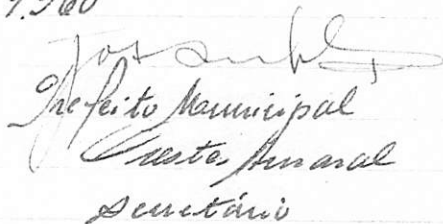 1.960
Prefeito Municipal
Oreste Amaral
Secretário